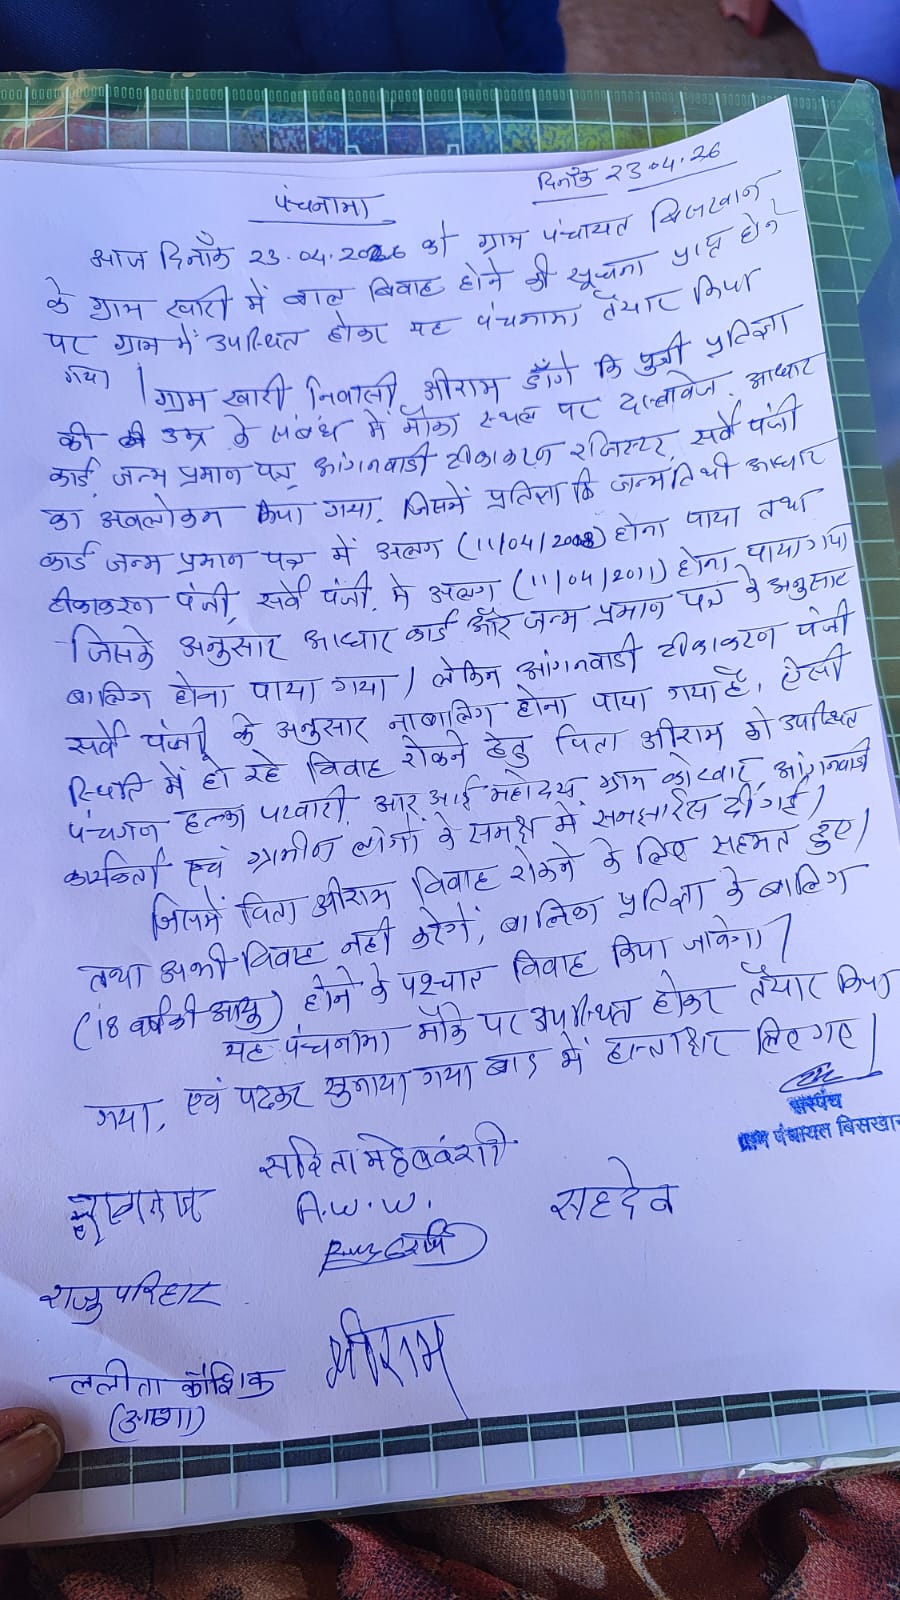 दिनाँक 23.04.26
पंचनामा
आज दिनाँक 23.04.2026 को ग्राम पंचायत बिसखान
के ग्राम खारी में बाल विवाह होने की सूचना प्राप्त होने
पर ग्राम में उपस्थित होकर यह पंचनामा तैयार किया
गया।
ग्राम खारी निवासी श्रीराम डाँगे कि पुत्री प्रतिज्ञा
की उम्र के संबंध में मौका स्थल पर दस्तावेज, आधार
कार्ड, जन्म प्रमान पत्र, आंगनवाडी टीकाकरन रजिस्टर, सर्वे पंजी
का अवलोकन किया गया, जिसमें प्रतिज्ञा कि जन्मतिथी आधार
कार्ड जन्म प्रमान पत्र में अलग (11/04/2008) होना पाया तथा
टीकाकरन पंजी, सर्वे पंजी, में अलग (11/04/2011) होना पाया गया
जिसके अनुसार आधार कार्ड और जन्म प्रमान पत्र के अनुसार
बालिग होना पाया गया। लेकिन आंगनवाडी टीकाकरन पंजी
सर्वे पंजी के अनुसार नाबालिग होना पाया गया है, ऐसी
स्थिति में हो रहे विवाह रोकने हेतु पिता श्रीराम को उपस्थित
पंचगन, हल्का पटवारी, आर आई महोदय, ग्राम कोटवार, आंगनवाडी
कार्यकर्ता एवं ग्रामीन लोगों के समक्ष में समझाईस दी गई।
जिसमें पिता श्रीराम विवाह रोकने के लिए सहमत हुए।
तथा अभी विवाह नही करेगें, बालिका प्रतिज्ञा के बालिग
(18 वर्ष की आयु) होने के पश्चात विवाह किया जावेगा।
यह पंचनामा मौके पर उपस्थित होकर तैयार किया
गया, एवं पढकर सुनाया गया बाद में हस्ताक्षर लिए गए।
सरपंच
ग्राम पंचायत बिसखान
सरिता महेलवंशी
A.W.W.
सहदेव
राजु परिहार
श्रीराम
ललीता कौशिक
(आशा)